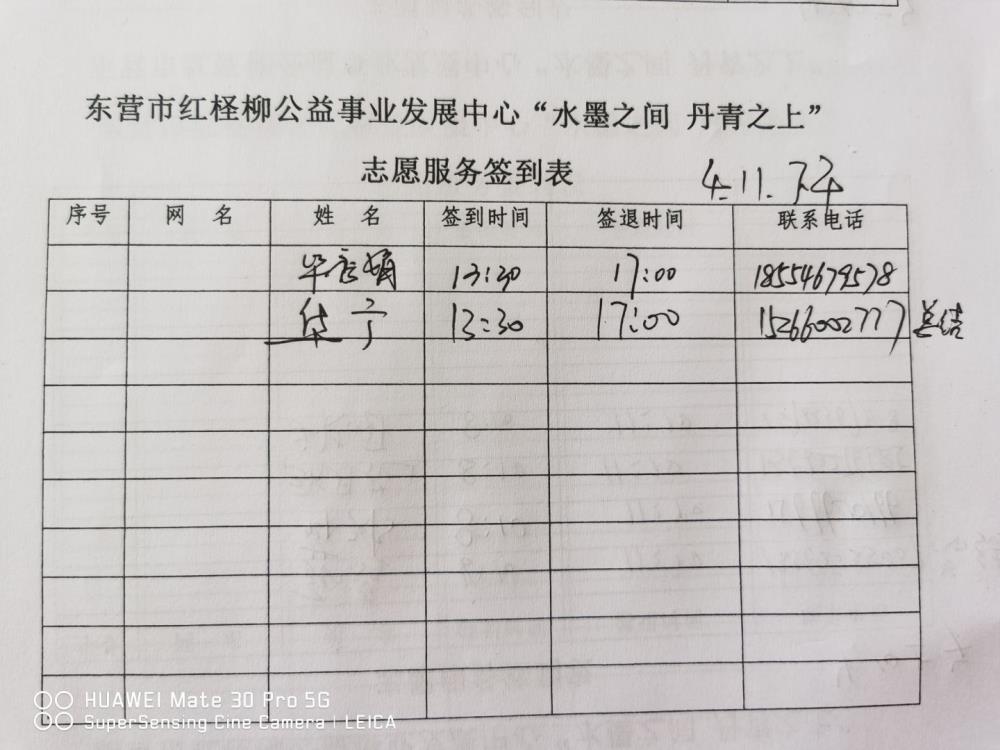 东营市红柽柳公益事业发展中心“水墨之间 丹青之上”
志愿服务签到表 4.11.下午
序号 网 名 姓 名 签到时间 签退时间 联系电话
13:30 17:00 18554679578
宁 13:30 17:00 15266002777 总结
HUAWEI Mate 30 Pro 5G
SuperSensing Cine Camera | LEICA